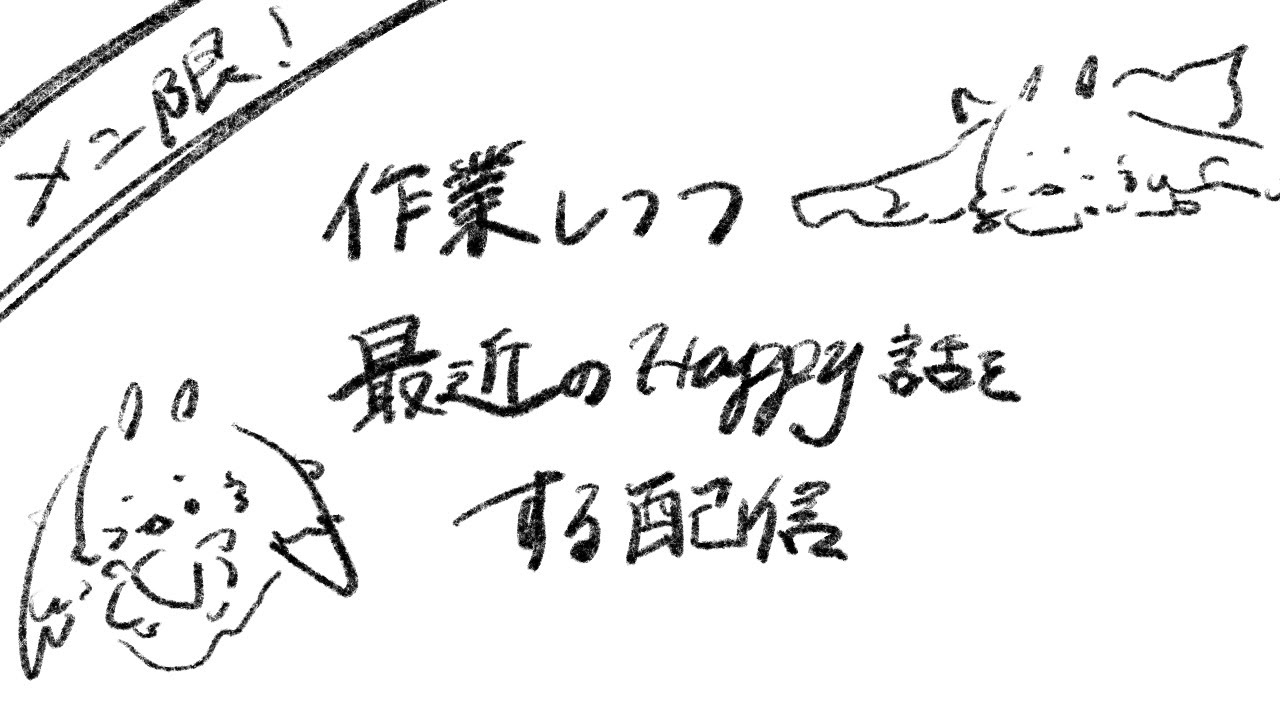 メン限!
作業しつつ
最近のHappy話を
する配信